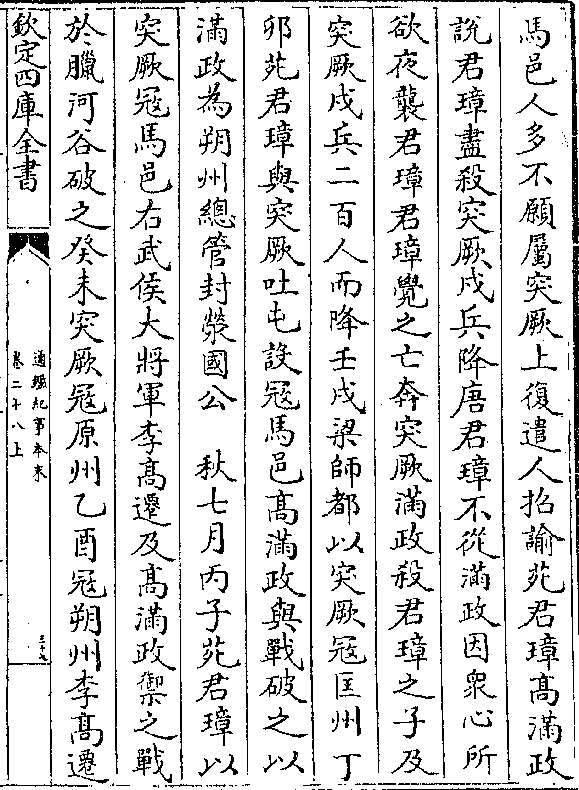 馬邑人多不願屬突厥上復遣人招諭苑君璋髙滿政
說君璋盡殺突厥戍兵降唐君璋不從滿政因衆心所
欲夜襲君璋君璋覺之亡奔突厥滿政殺君璋之子及
突厥戍兵二百人而降壬戌梁師都以突厥冦匡州丁
卯苑君璋與突厥吐屯設冦馬邑髙滿政與戰破之以
滿政為朔州總管封滎國公　秋七月丙子苑君璋以
突厥冦馬邑右武侯大將軍李髙遷及髙滿政禦之戰
於臘河谷破之癸未突厥冦原州乙酉冦朔州李髙遷
欽定四庫全書
通鑑紀事本末
卷二十八上
三十九